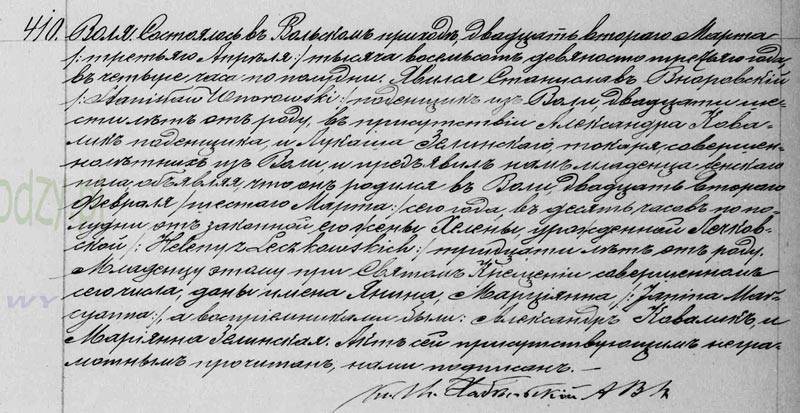 410. Воля. Состоялось въ Вольскомъ приходѣ, двадцать втораго Марта
/:третьяго Апрѣля:/ тысяча восемьсотъ девяносто третьяго года,
въ четыре часа по полудни. Явился Станиславъ Вноровскій
/:Stanisław Wnorowski:/ поденщикъ изъ Воли, двадцати ше-
сти лѣтъ отъ роду, въ присутствіи Александра Кова-
ликъ поденщика, и Лукаша Зелинскаго, токаря, совершен-
нолѣтнихъ изъ Воли, и предъявилъ намъ младенца женскаго
пола, объявляя, что онъ родился въ Воли, двадцать втораго
Февраля /шестаго Марта:/ сего года, въ десять часовъ по по-
лудни отъ законной его жены Хелены, урожденной Лечков-
ской /:Heleny z Leczkowskich:/ тридцати лѣтъ отъ роду.
Младенцу этому при Святомъ Крещеніи совершенномъ
сего числа, даны имена Янина, Марціянна /:Janina Mar-
cyanna:/ а воспріемниками были: Александръ Коваликъ, и
Маріянна Зелинская. Актъ сей присутствующимъ негра-
мотнымъ прочитанъ, нами подписанъ. —